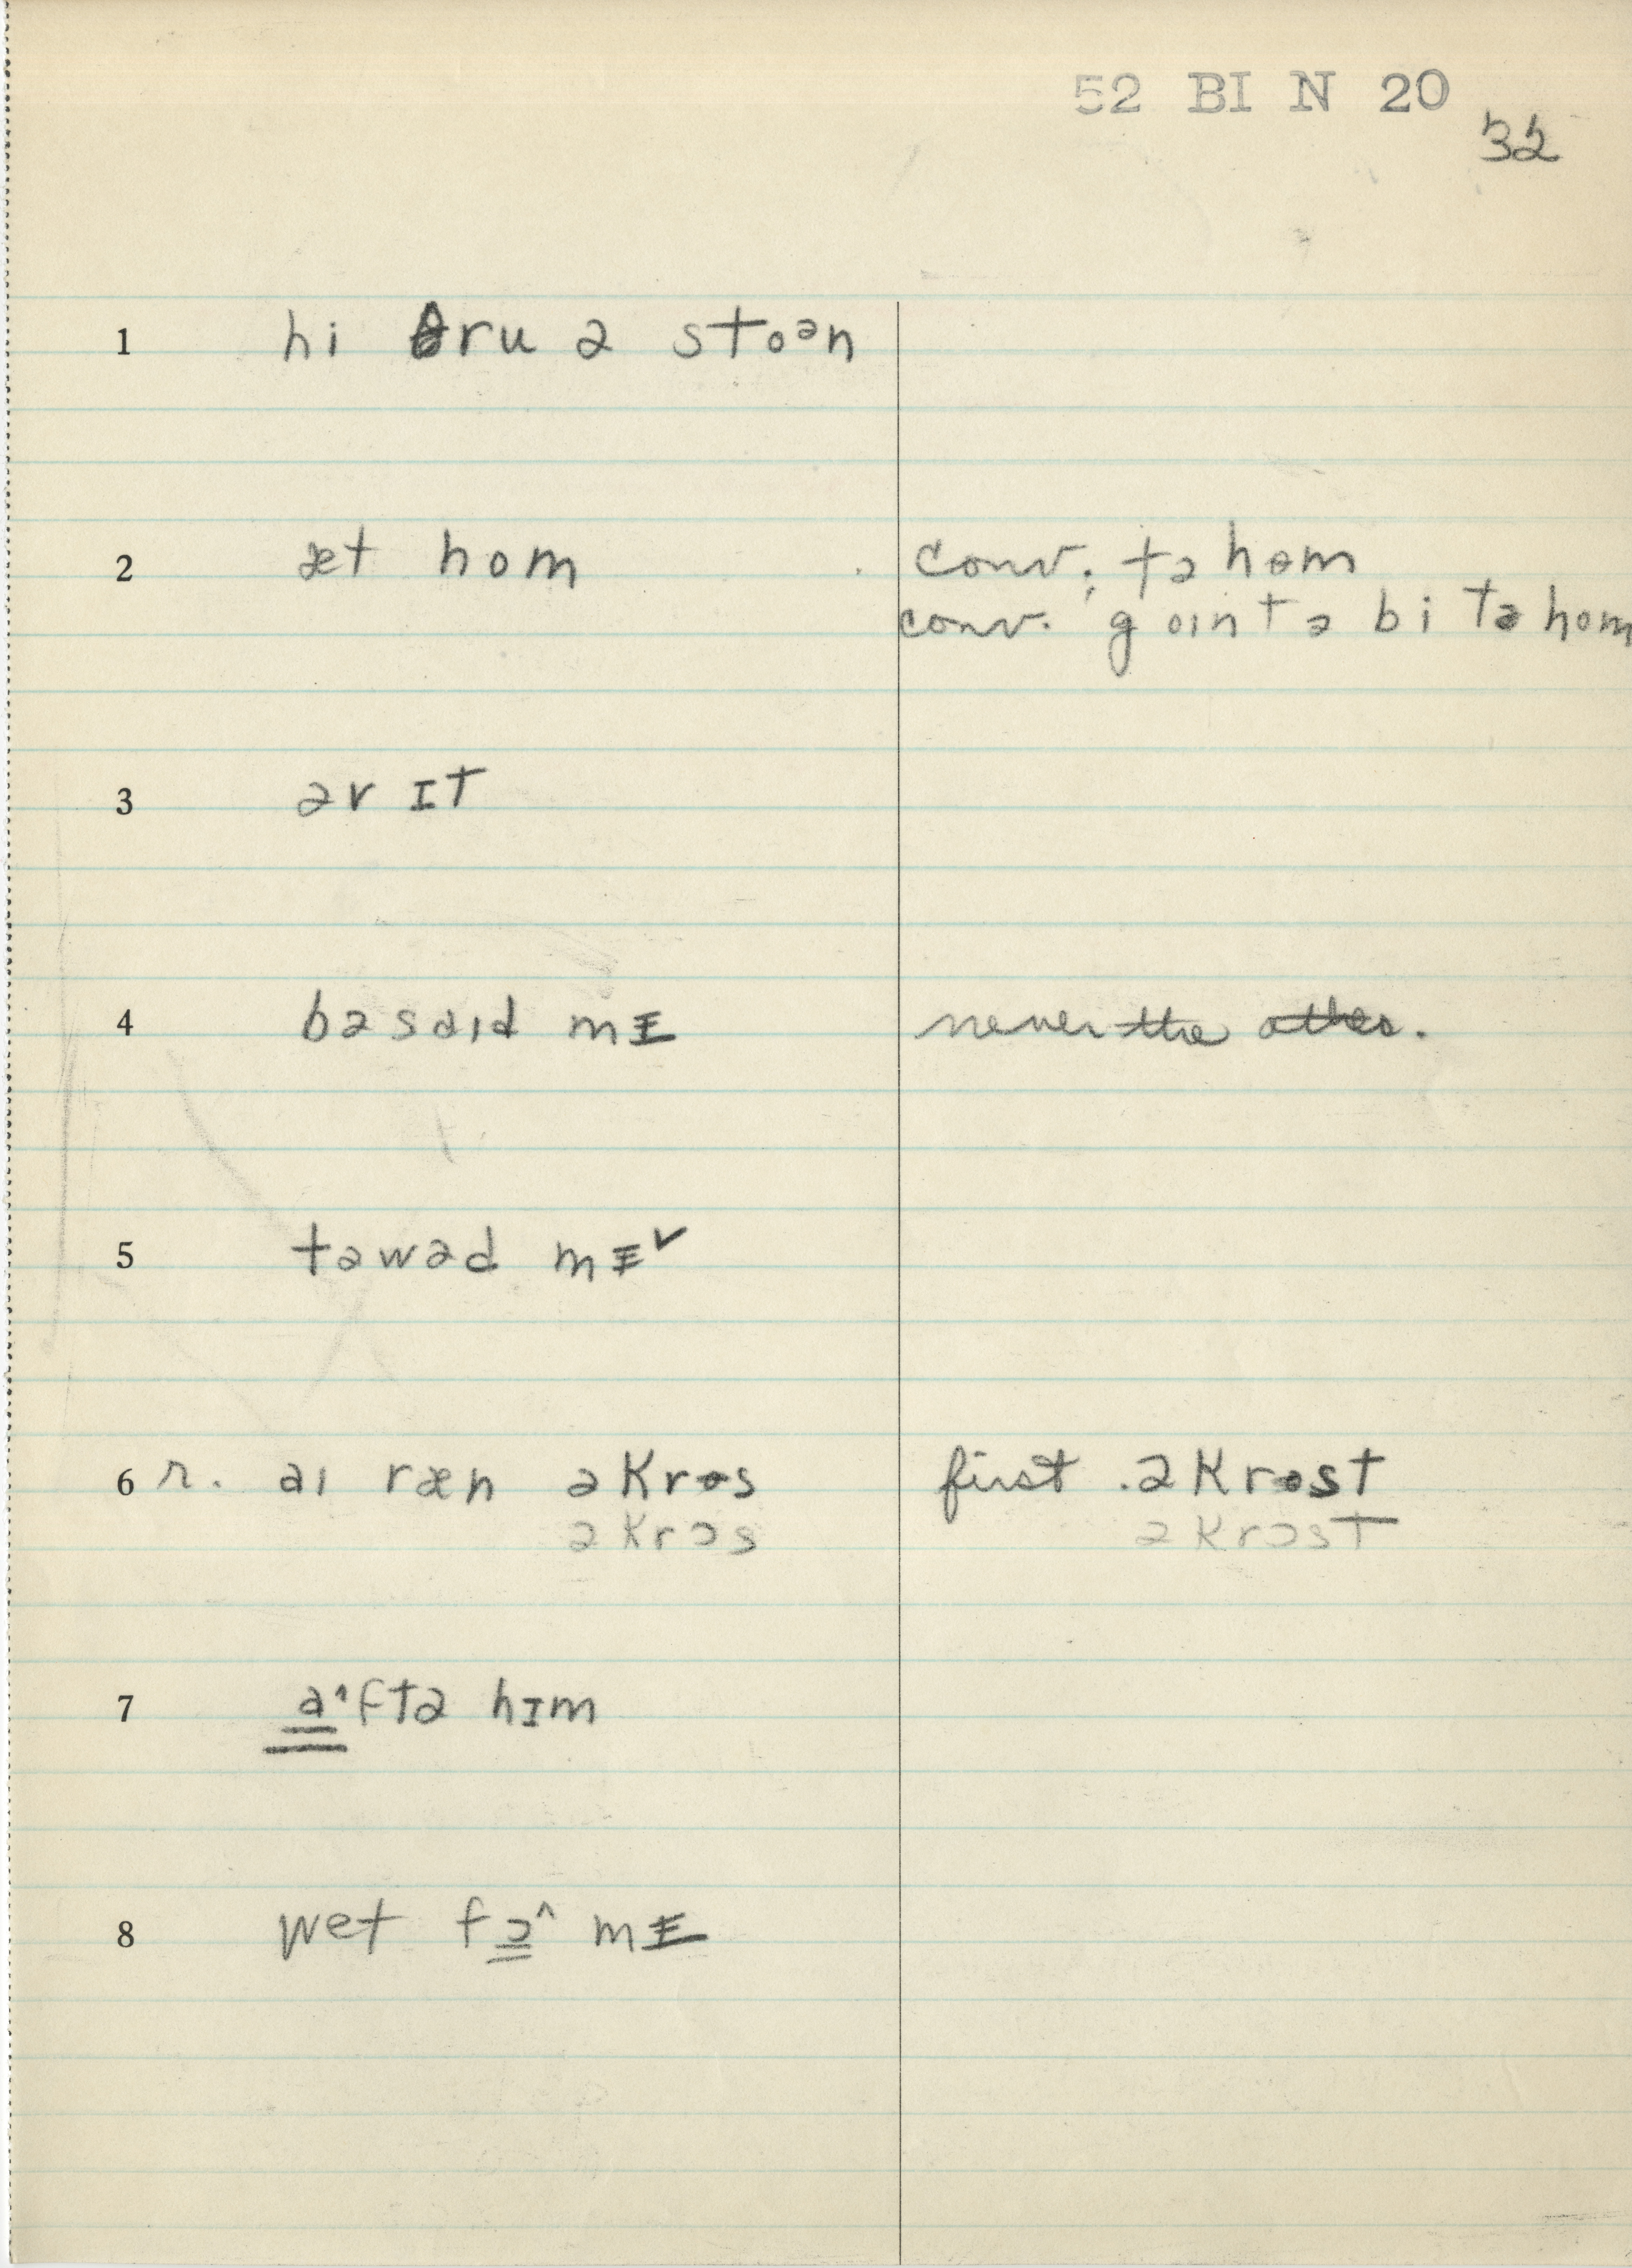 52 BI N 20
32
1 hi θru ə stoən
2 æt hom conv. tə hom
conv. goɪn tə bi tə hom
3 əv ɪt
4 bəsaɪd mɪ never the other.
5 təwəd mɪ˅
6 r. aɪ ræn əkrɵs first . əkrɵst
əkrɔs əkrɔst
7 a^ftə hɪm
8 wet fɔ^ mɪ